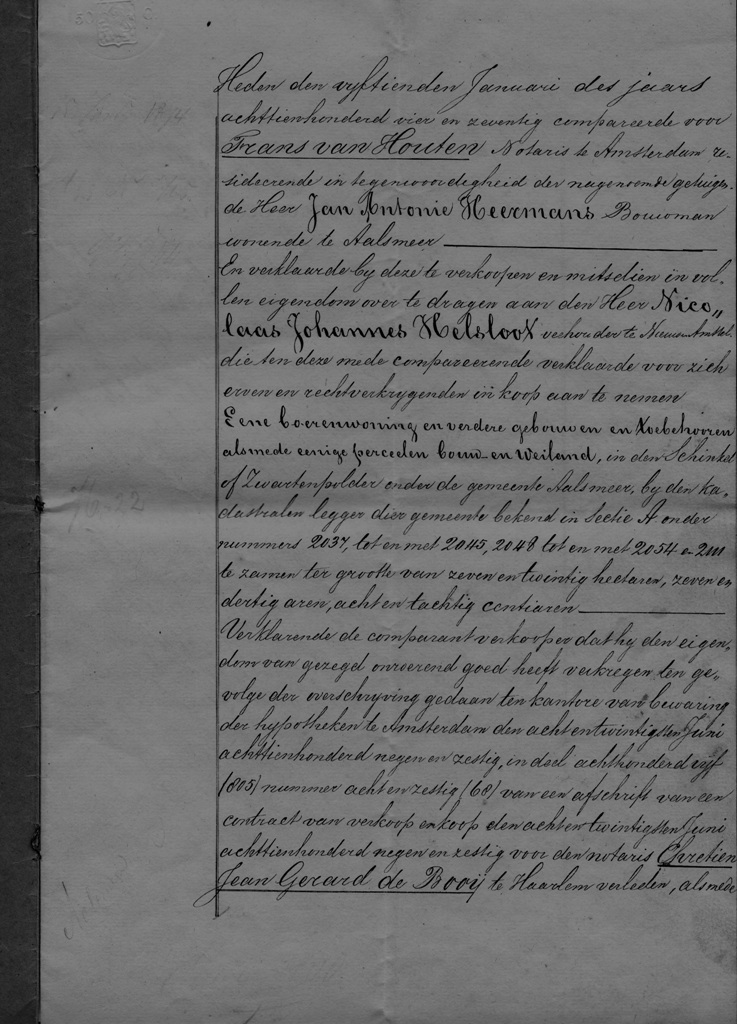 Heden den vyftienden Januari des jaars
achttienhonderd vier en zeventig compareerde voor
Frans van Houten Notaris te Amsterdam re-
sideerende in tegenwoordigheid der nagenoemde getuigen
de Heer Jan Antonie Heermans Bouwman
wonende te Aalsmeer
En verklaarde by deze te verkoopen en mitsdien in vol-
len eigendom over te dragen aan den Heer Nico„
laas Johannes Helsloot veehouder te Nieuwer Amstel
die ten deze mede compareerende verklaarde voor zich
erven en rechtverkrygenden in koop aan te nemen
Eene boerenwoning en verdere gebouwen en toebehooren
alsmede eenige perceelen bouw- en Weiland, in den Schinkel
of Zwartenpolder onder de gemeente Aalsmeer, by den ka-
dastralen legger dier gemeente bekend in Sectie A onder
nummers 2037, tot en met 2045, 2048 tot en met 2054 en
te zamen ter grootte van zeven en twintig hectaren, zeven en
dertig aren, acht en tachtig centiaren
Verklarende de comparant verkooper dat hy den eigen-
dom van gezegd onroerend goed heeft verkregen ten ge-
volge der overschryving gedaan ten kantore van bewaring
der hypotheken te Amsterdam den acht en twintigsten Juni
achttienhonderd negen en zestig, in deel achthonderd vyf
(805) nummer acht en zestig (68) van een afschrift van een
contract van verkoop en koop den acht en twintigsten Juni
achttienhonderd negen en zestig voor den notaris Chretien
Jean Gerard de Booij te Haarlem verleden, alsmede